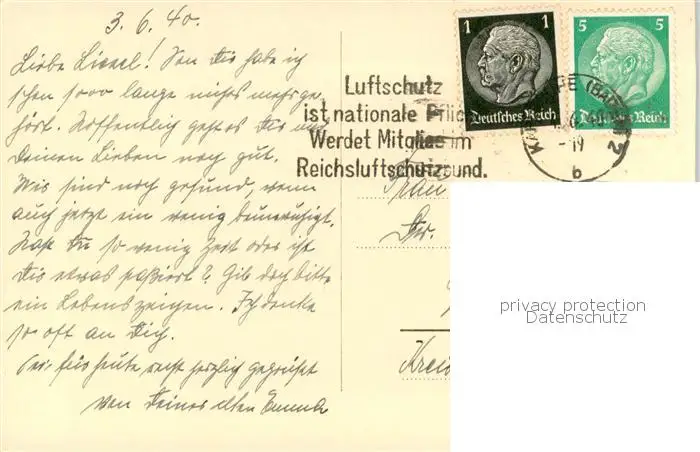 3. 6. 40.
Liebe Liesel! Von Dir habe ich
schon sooo lange nichts mehr ge-
hört. Hoffentlich geht es Dir und
Deinen Lieben noch gut.
Wir sind noch gesund, wenn
auch jetzt ein wenig beunruhigt.
Hast Du so wenig Zeit oder ist
Dir etwas passiert? Gib doch bitte
ein Lebenszeichen. Ich denke
so oft an Dich.
für heute recht herzlich gegrüßt
von Deiner alten Emma
Luftschutz
ist nationale Pflic
Werdet Mitglied im
Reichsluftschutzbund.
1 1
Deutsches Reich
5 5
Reich
-19
2
b
Frau
Dr.
Kreis
privacy protection
Datenschutz